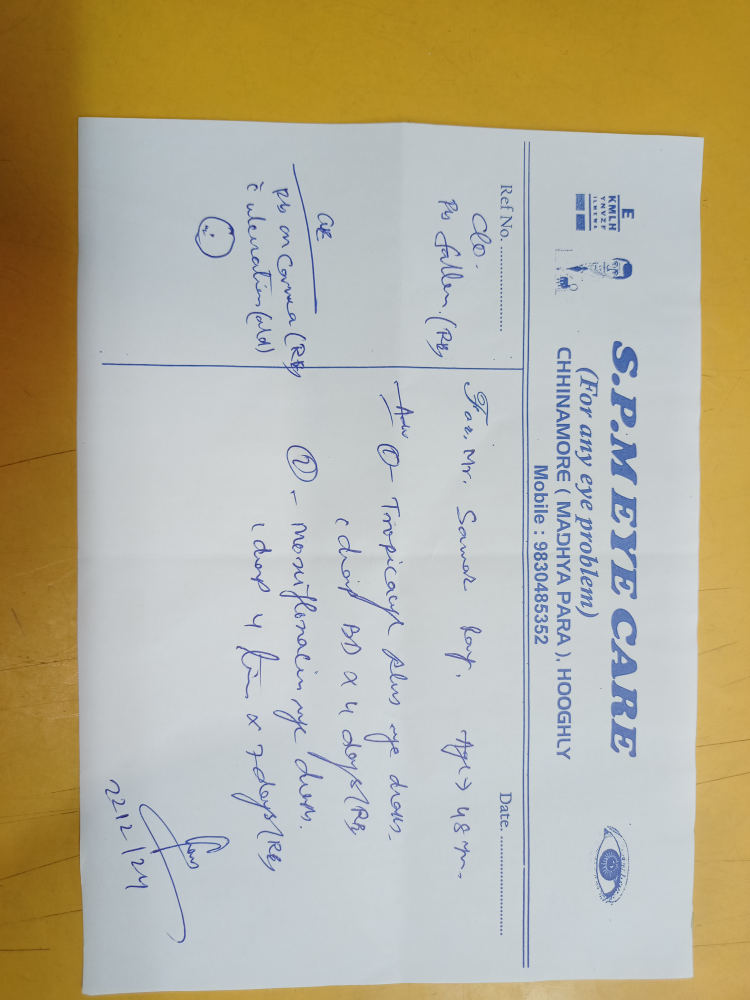 S.P.M EYE CARE
(For any eye problem)
CHHINAMORE ( MADHYA PARA ), HOOGHLY
Mobile : 9830485352
E
KMLH
Ref No. ........................
Date. ........................
C/O.
FB fallen. (RE)
For, Mr. Samar Roy. Age > 48 yrs.
O/E
FB on Cornea (RE)
c̄ ulceration (old)
Adv
① - Tropicacyl plus eye drops.
1 drop BD x 4 days (RE)
② - Moxifloxacin eye drops.
1 drop 4 times x 7 days (RE)
22/2/24